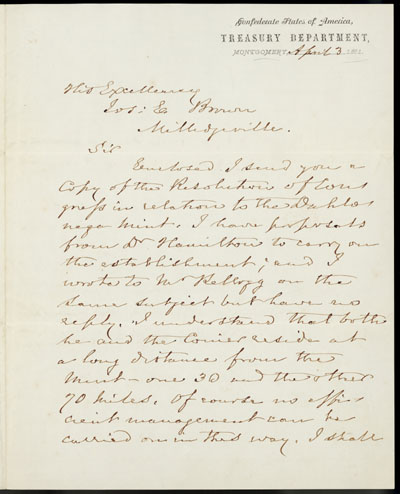 Confederate States of America,
TREASURY DEPARTMENT,
MONTGOMERY, April 3 1861.
His Excellency
Jos: E Brown
Milledgeville.
Sir
Enclosed I send you a
Copy of the Resolution of Con
gress in relation to the Dahlo
nega Mint. I have proposals
from Dr Hamilton to carry on
the establishment; and I
wrote to Mr Kellogg on the
same subject but have no
reply. I understand that both
he and the Coiner reside at
a long distance from the
Mint - one 30 and the other
70 miles. Of course no effi-
cient management can be
carried on in this way. I shall